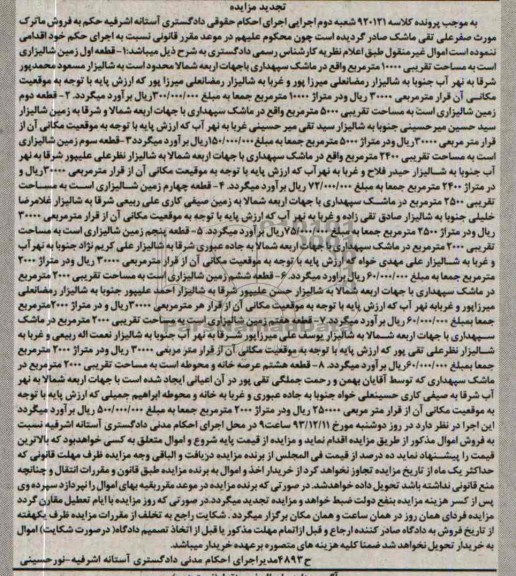 تجدید مزایده
به موجب پرونده کلاسه ۹۲۰۱۲۱ شعبه دوم اجرایی اجرای احکام حقوقی دادگستری آستانه اشرفیه حکم به فروش ماترک
مورث صفرعلی تقی ماشک صادر گردیده است چون محکوم علیهم در موعد مقرر قانونی نسبت به اجرای حکم خود اقدامی
ننموده است اموال غیرمنقول طبق اعلام نظریه کارشناس رسمی دادگستری به شرح ذیل میباشد:۱- قطعه اول زمین شالیزاری
است به مساحت تقریبی ۱۰۰۰۰ مترمربع واقع در ماشک سپهداری باجهات اربعه شمالا محدود است به شالیزار مسعود محمدپور
شرقا به نهر آب جنوبا به شالیزار رمضانعلی میرزا پور و غربا به شالیزار رمضانعلی میرزا پور که ارزش پایه با توجه به موقعیت
مکانی آن قرار مترمربعی ۳۰۰۰۰ ریال ودر متراژ ۱۰۰۰۰ مترمربع جمعا به مبلغ ۳۰۰/۰۰۰/۰۰۰ریال برآورد میگردد. ۲- قطعه دوم
زمین شالیزاری است به مساحت تقریبی ۵۰۰۰ مترمربع واقع در ماشک سپهداری با جهات اربعه شمالا و شرقا به زمین شالیزار
سید حسین میرحسینی جنوبا به شالیزار سید تقی میر حسینی غربا به نهر آب که ارزش پایه با توجه به موقعیت مکانی آن از
قرار متر مربعی ۳۰۰۰۰ریال ودر متراژ ۵۰۰۰ مترمربع جمعا به مبلغ ۱۵۰/۰۰۰/۰۰۰ریال برآورد میگردد۳-قطعه سوم زمین شالیزاری
است به مساحت تقریبی ۲۴۰۰ مترمربع واقع در ماشک سپهداری با جهات اربعه شمالا به شالیزار نظرعلی علیپور شرقا به نهر
آب جنوبا به شالیزار حیدر فلاح و غربا به نهر آب که ارزش پایه با توجه به موقعیت مکانی آن از قرار مترمربعی ۳۰۰۰۰ریال و
در متراژ ۲۴۰۰ مترمربع جمعا به مبلغ ۷۲/۰۰۰/۰۰۰ ریال برآورد میگردد. ۴- قطعه چهارم زمین شالیزاری است به مساحت
تقریبی ۲۵۰۰ مترمربع در ماشک سپهداری با جهات اربعه شمالا به زمین صیفی کاری علی ربیعی شرقا به شالیزار غلامرضا
خلیلی جنوبا به شالیزار صادق تقی زاده و غربا به نهر آب که ارزش پایه با توجه به موقعیت مکانی آن از قرار مترمربعی ۳۰۰۰۰
ریال ودر متراژ ۲۵۰۰ مترمربع جمعا به مبلغ ۷۵/۰۰۰/۰۰۰ریال برآورد میگردد. ۵- قطعه پنجم زمین شالیزاری است به مساحت
تقریبی ۲۰۰۰ مترمربع در ماشک سپهداری با جهات اربعه شمالا به جاده عبوری شرقا به شالیزار علی کریم نژاد جنوبا به نهر آب
و غربا به شالیزار علی مهدی خواه که ارزش پایه با توجه به موقعیت مکانی آن از قرار مترمربعی ۳۰۰۰۰ ریال ودر متراژ ۲۰۰۰
مترمربع جمعا به مبلغ ۶۰/۰۰۰/۰۰۰ ریال برآورد میگردد. ۶- قطعه ششم زمین شالیزاری است به مساحت تقریبی ۲۰۰۰ مترمربع
در ماشک سپهداری با جهات اربعه شمالا به شالیزار حسن علیپور شرقا به شالیزار احمد علیپور جنوبا به شالیزار رمضانعلی
میرزاپور و غربابه نهر آب که ارزش پایه با توجه به موقعیت مکانی آن از قرار هر مترمربعی ۳۰۰۰۰ریال و در متراژ ۲۰۰۰مترمربع
جمعا بمبلغ ۶۰/۰۰۰/۰۰۰ ریال برآورد میگردد. ۷- قطعه هفتم زمین شالیزاری است به مساحت تقریبی ۲۰۰۰ مترمربع در ماشک
سپهداری با جهات اربعه شمالا به شالیزار یوسف علی میرزاپور شرقا به نهر آب جنوبا به شالیزار نعمت اله ربیعی و غربا به
شالیزار نظرعلی تقی پور که ارزش پایه با توجه به موقعیت مکانی آن از قرار متر مربعی ۳۰۰۰۰ ریال ودر متراژ ۲۰۰۰ مترمربع
جمعا بمبلغ ۶۰/۰۰۰/۰۰۰ریال برآورد میگردد. ۸- قطعه هشتم عرصه خانه و محوطه است به مساحت تقریبی ۲۰۰۰ مترمربع در
ماشک سپهداری که توسط آقایان بهمن و رحمت جملگی تقی پور در آن اعیانی ایجاد شده است با جهات اربعه شمالا به نهر
آب شرقا به صیفی کاری حسینعلی خواه جنوبا به جاده عبوری و غربا به خانه و محوطه ابراهیم جمیلی که ارزش پایه با توجه
به موقعیت مکانی آن از قرار متر مربعی ۲۵۰۰۰۰ ریال ودر متراژ ۲۰۰۰ مترمربع جمعا به مبلغ ۵۰۰/۰۰۰/۰۰۰ ریال برآورد میگردد
این اجرا در نظر دارد در روز دوشنبه مورخ ۹۳/۱۲/۱۱ ساعت۹ در محل اجرای احکام مدنی دادگستری آستانه اشرفیه نسبت
به فروش اموال مذکور از طریق مزایده اقدام نماید و مزایده از قیمت پایه شروع و اموال متعلق به کسی خواهدبود که بالاترین
قیمت را پیشنهاد نماید ده درصد از قیمت فی المجلس از برنده مزایده دریافت و الباقی وجه مزایده ظرف مهلت قانونی که
حداکثر یک ماه از تاریخ مزایده تجاوز نخواهد کرد از خریدار اخذ و اموال به برنده مزایده طبق قانون و مقررات انتقال و چنانچه
منع قانونی نداشته باشد تحویل داده خواهدشد. در صورتی که برنده مزایده در موعد مقرربقیه بهای اموال را نپردازد سپرده وی
پس از کسر هزینه مزایده بنفع دولت ضبط خواهد و مزایده تجدید میگردد.در صورتی که روز مزایده با ایام تعطیل مقارن گردد
مزایده فردای همان روز در همان ساعت و همان مکان برگزار میگردد . شکایت راجع به تخلف از مقررات مزایده ظرف یکهفته
از تاریخ فروش به دادگاه صادر کننده ارجاع و قبل ازاتمام مهلت مذکور یا قبل از اتخاذ تصمیم دادگاه( درصورت شکایت) اموال
به خریدار تحویل نخواهد شد ضمنا کلیه هزینه های متصوره برعهده خریدار میباشد.
ح۴۸۹۳مدیراجرای احکام مدنی دادگستری آستانه اشرفیه-نورحسینی